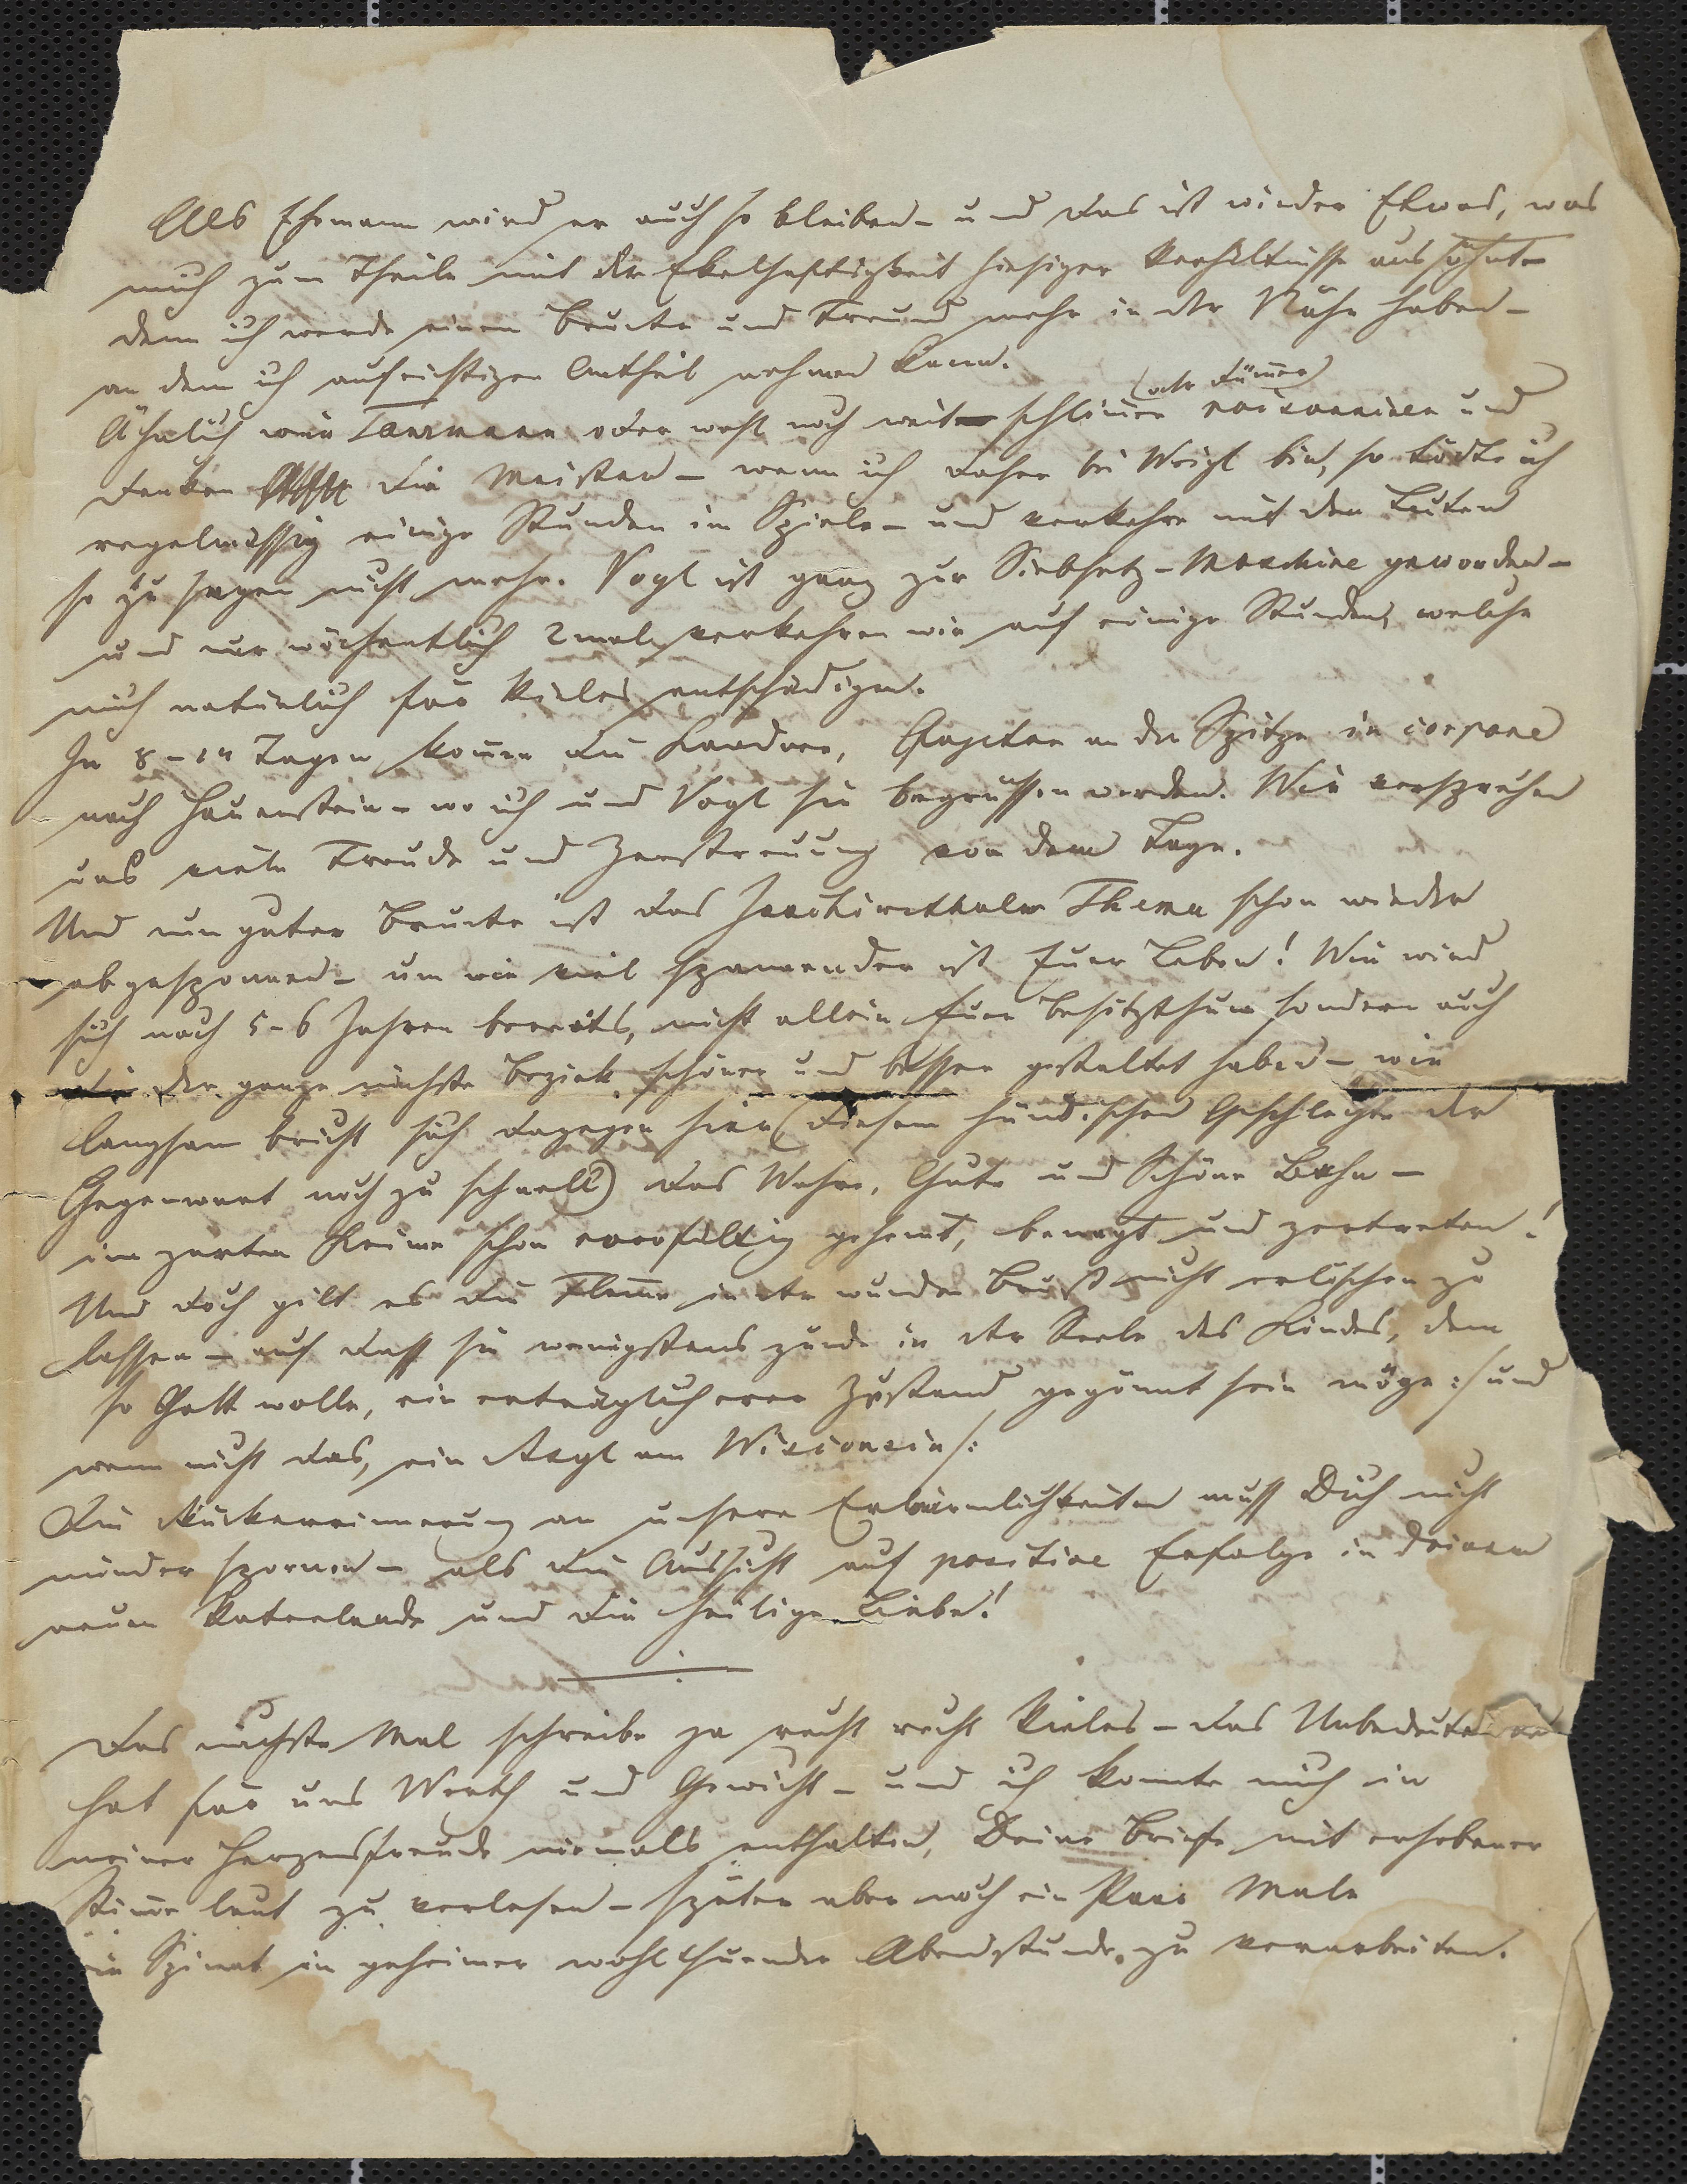 Als Ehemann wird er auch so bleiben – und das ist wieder Etwas, was
mich zum Theile mit der Ekelhaftigkeit hiesiger Verhältnisse aussöhnt –
denn ich werde einen Bruder und Freund mehr in der Nähe haben –
an dem ich aufrichtigen Antheil nehmen kann.
(oder dümer)
Ähnlich wie oder wohl noch weit schlimer raisonniren und
denken die Meisten – wenn ich daher bei Weigl bin, so tödte ich
regelmässig einige Stunden im Spiele – und verkehre mit den Leuten
so zu sagen nicht mehr. Vogl ist ganz zur Maschine geworden –
und nur wöchentlich 2mal verkehren wir auf einige Stunden, welche
mich natürlich für Vieles entschädigen.
In 8–14 Tagen komen die an der Spitze in corpore
nach Hauenstein – wo ich und Vogl sie begrüssen werden. Wir versprechen
uns viele Freude und Zerstreuung von dem Tage.
Und nun guter Bruder ist das Joachimsthaler Thema schon wieder
abgesponnen – um wie viel spannender ist Euer Leben! Wie wird
sich nach 5–6 Jahren bereits, nicht allein Euer Besitzthum sondern auch
der ganze nächste Bezirk schöner und besser gestaltet haben – wie
langsam bricht sich dagegen hier (diesem hündischen Geschlechte der
Gegenwart noch zu schnell) das Wahre, Gute und Schöne Bahn –
im zarten Keime schon sorgfältig gehemt, benagt und zertreten!
Und doch gilt es die Flame in der wunden Brust nicht erlöschen zu
lassen – auf dass sie wenigstens zünde in der Seele des Kindes, dem
so Gott wolle, ein erträglicherer Zustand gegönnt sein möge :/ und
wenn nicht das, ein Asyl am Wisconsin /:
Die Rückerinnerung an unsere Erbärmlichkeiten muss Dich nicht
minder spornen – als die Aussicht auf positive Erfolge in Deinem
neuen Vaterlande und die heilige Liebe!
Das nächste Mal schreibe ja recht recht Vieles – das Unbedeutendste
hat für uns Werth und Gewicht – und ich konnte mich in
meiner Herzensfreude niemals enthalten, Deine Briefe mit erhobener
Stime laut zu verlesen – später aber noch ein Paar Male
in geheimer wohlthuender Abendstunde zu verarbeiten.